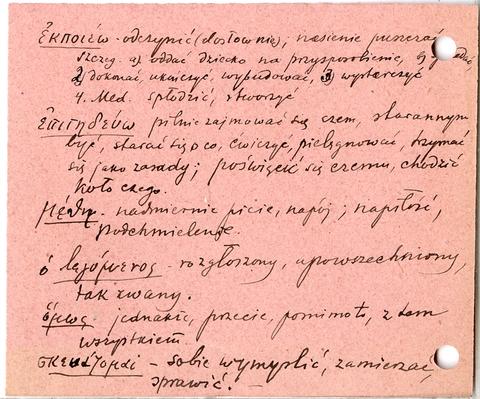 ἐκποιέω - odczynić (dosłownie); nasienie puszczać
szczeg. a) oddać dziecko na przysposobienie,
2) dokonać, ukończyć, wybudować, 3) wystarczyć
4. Med. spłodzić, stworzyć
ἐπιτηδεύω pilnie zajmować się czem, starannym
być, starać się o co, ćwiczyć, pielęgnować, trzymać
się jako zasady; poświęcić się czemu, chodzić
koło czego.
μέθη - nadmiernie picie, napój; napiłość,
podchmielenie.
ὁ λεγόμενος - rozgłoszony, upowszechniony,
tak zwany.
ὅμως - jednakże, przecie, pomimo to, z tem
wszystkiem.
- sobie wymyślić, zamierzać,
sprawić!